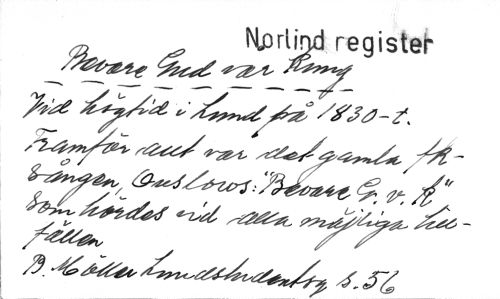 Norlind register
Bevare Gud vår Kung
Vid högtid i Lund på 1830-t.
Framför allt var det gamla fk-
sången, Onslows: "Bevare G. v. K"
som hördes vid alla möjliga till-
fällen
B. Möller Lundstudentsg s. 56